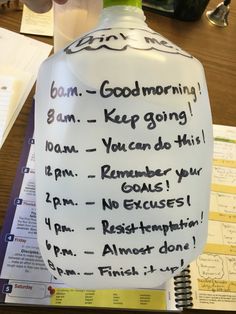 Drink me
6am. - Good morning!
8am. - Keep going!
10a.m. - You can do this!
12p.m. - Remember your
GOALS!
2p.m. - NO EXCUSES!
4p.m. - Resist temptation!
6p.m. - Almost done!
8p.m. - Finish it up!
5 Friday
Saturday